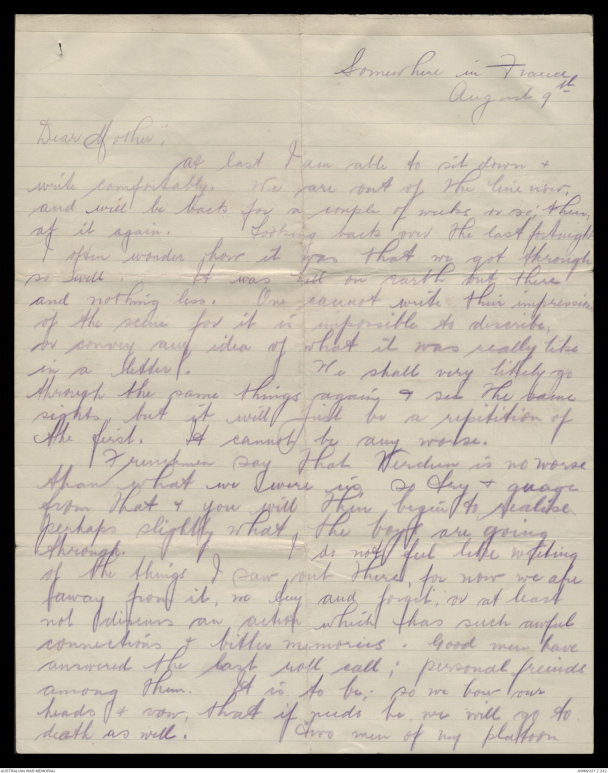 Somewhere in France
August 9th
Dear Mother,
at last I am able to sit down &
write comfortably. We are out of the line now,
and will be back for a couple of weeks or so; then
at it again. Looking back over the last fortnight
I often wonder how it was that we got through
so well. It was hell on earth out there
and nothing less. One cannot write their impressions
of the scene for it is impossible to describe,
or convey any idea of what it was really like
in a letter. We shall very likely go
through the same things again & see the same
sights but it will just be a repetition of
the first. It cannot be any worse.
Frenchmen say that Verdun is no worse
than what we were in so try & guage
from that & you will then begin to realise
perhaps slightly what the boys are going
through. I do not feel like writing
of the things I saw out there, for now we are
away from it, we try and forget, or at least
not discuss an action which has such awful
connections & bitter memories. Good men have
answered the last roll call; personal freinds
among them. It is to be; so we bow our
heads & vow, that if needs be we will go to
death as well. Two men of my platoon
AUSTRALIAN WAR MEMORIAL
AWM2021.7.247